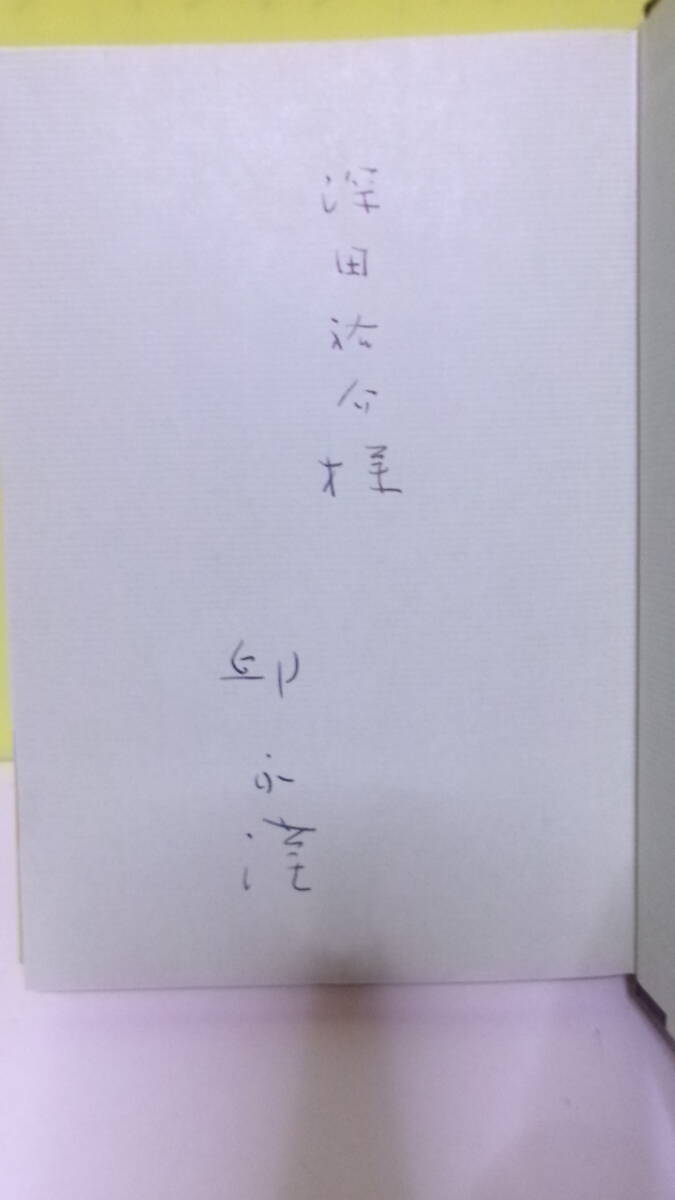 深田祐介様
邱永漢